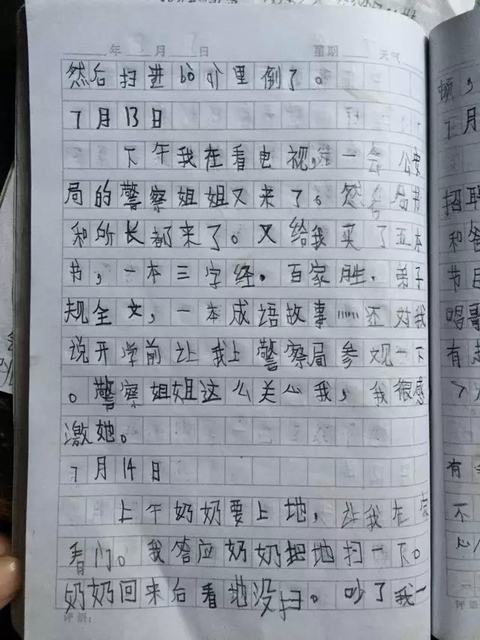 年 月 日 星期 天气
然后扫进炉里倒了。
7月13日
下午我在看电视,一会公安
局的警察姐姐又来了。书
和所长都来了。又给我买了五本
书,一本三字经.百家胜.弟子
规全文,一本成语故事……还对我
说开学前让我上警察局参观一下
。警察姐姐这么关心我,我很感
激她。
7月14日
上午奶奶要上地,让我在家
看门。我答应奶奶把地扫一下。
奶奶回来后看地没扫。吵了我一
评语:
顿,
7月
招聘
和爸
节目
唱歌
有
有
不